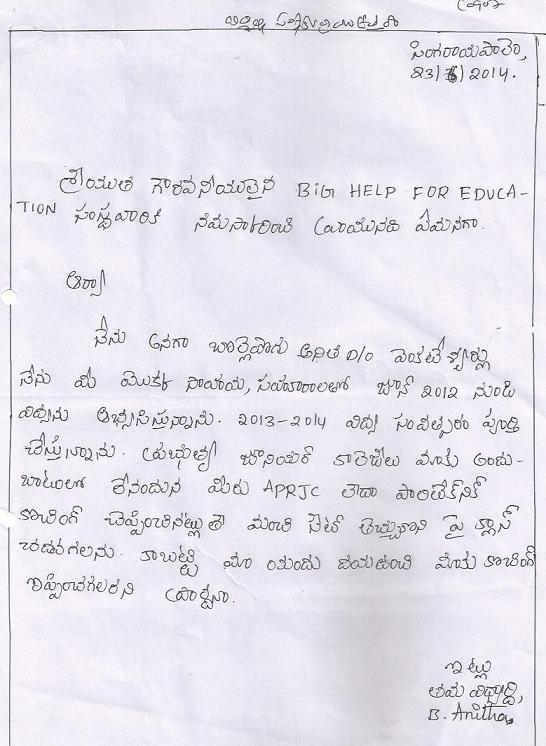 సింగరాయపాలెం,
23/6/2014.
శ్రీయుత గౌరవనీయులైన BIG HELP FOR EDUCA-
TION సంస్థవారికి నమస్కరించి వ్రాయునది ఏమనగా.
ఆర్యా
నేను అనగా బొల్లెపోగు అనిత D/O వెంకటేశ్వర్లు
నేను మీ యొక్క సాయం, సహకారాలతో జూన్ 2012 నుండి
విద్యను అభ్యసిస్తున్నాను. 2013-2014 విద్యా సంవత్సరం పూర్తి
చేస్తున్నాను. ప్రభుత్వ జూనియర్ కాలేజీలు మాకు అందు-
బాటులో లేనందున మీరు APRJC లేదా పాలిటెక్నిక్
కోచింగ్ చెప్పించినట్లు తే మంచి సీట్ తెచ్చుకొని పై క్లాస్
చదువగలను. కాబట్టి మా యందు దయఉంచి మాకు కోచింగ్
ఇప్పించగలరని ప్రార్థన.
ఇట్లు
తమ విద్యార్థి,
B. Anitha